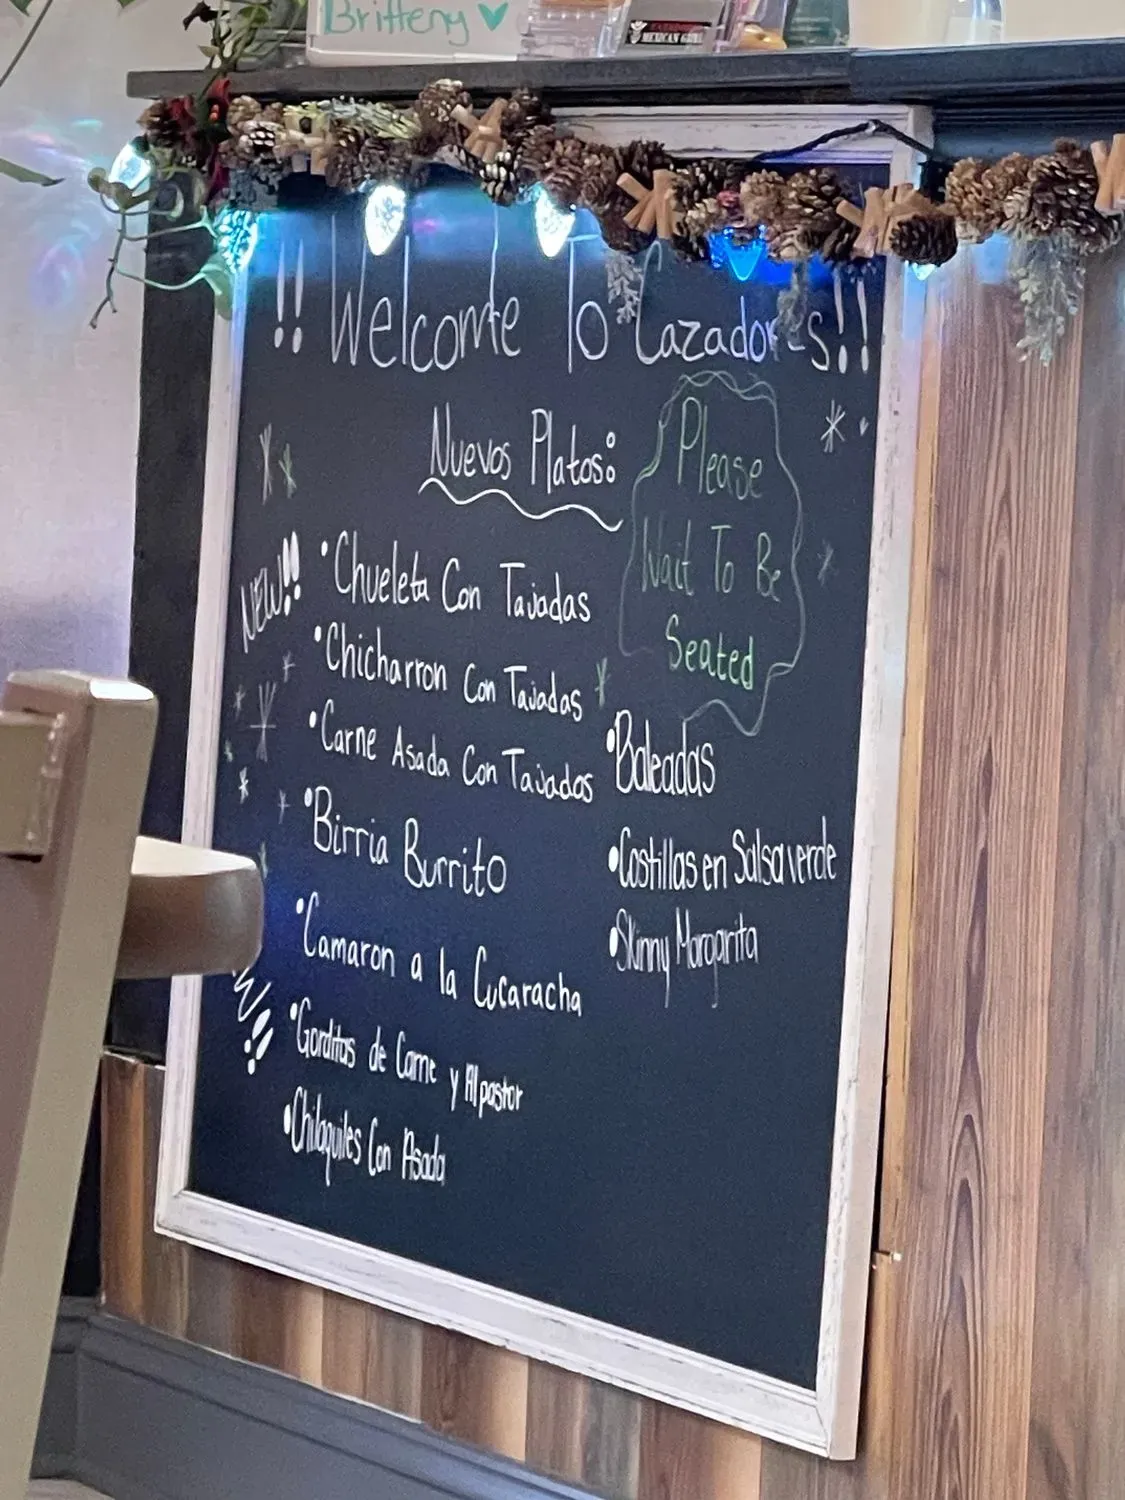 Britteny
MEXICAN GRILL
!! Welcome To Cazadores!!
Nuevos Platos:
Please
Wait To Be
Seated
NEW!!
•Chueleta Con Tajadas
•Chicharron Con Tajadas
•Carne Asada Con Tajadas
•Birria Burrito
•Camaron a la Cucaracha
•Gorditas de Carne y Al pastor
•Chilaquiles Con Asada
•Baleadas
•Costillas en Salsa verde
•Skinny Margarita